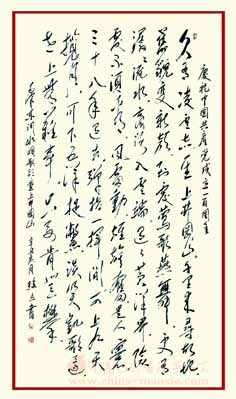 庆祝中国共产党成立一百周年
久有凌云志重上井冈山千里来寻故地
旧貌变新颜到处莺歌燕舞更有
潺潺流水高路入云端过了黄洋界险
处不须看风雷动旌旗奋是人寰
三十八年过去弹指一挥间可上九天
揽月可下五洋捉鳖谈笑凯歌还
世上无难事只要肯登攀
毛泽东词水调歌头重上井冈山 辛丑